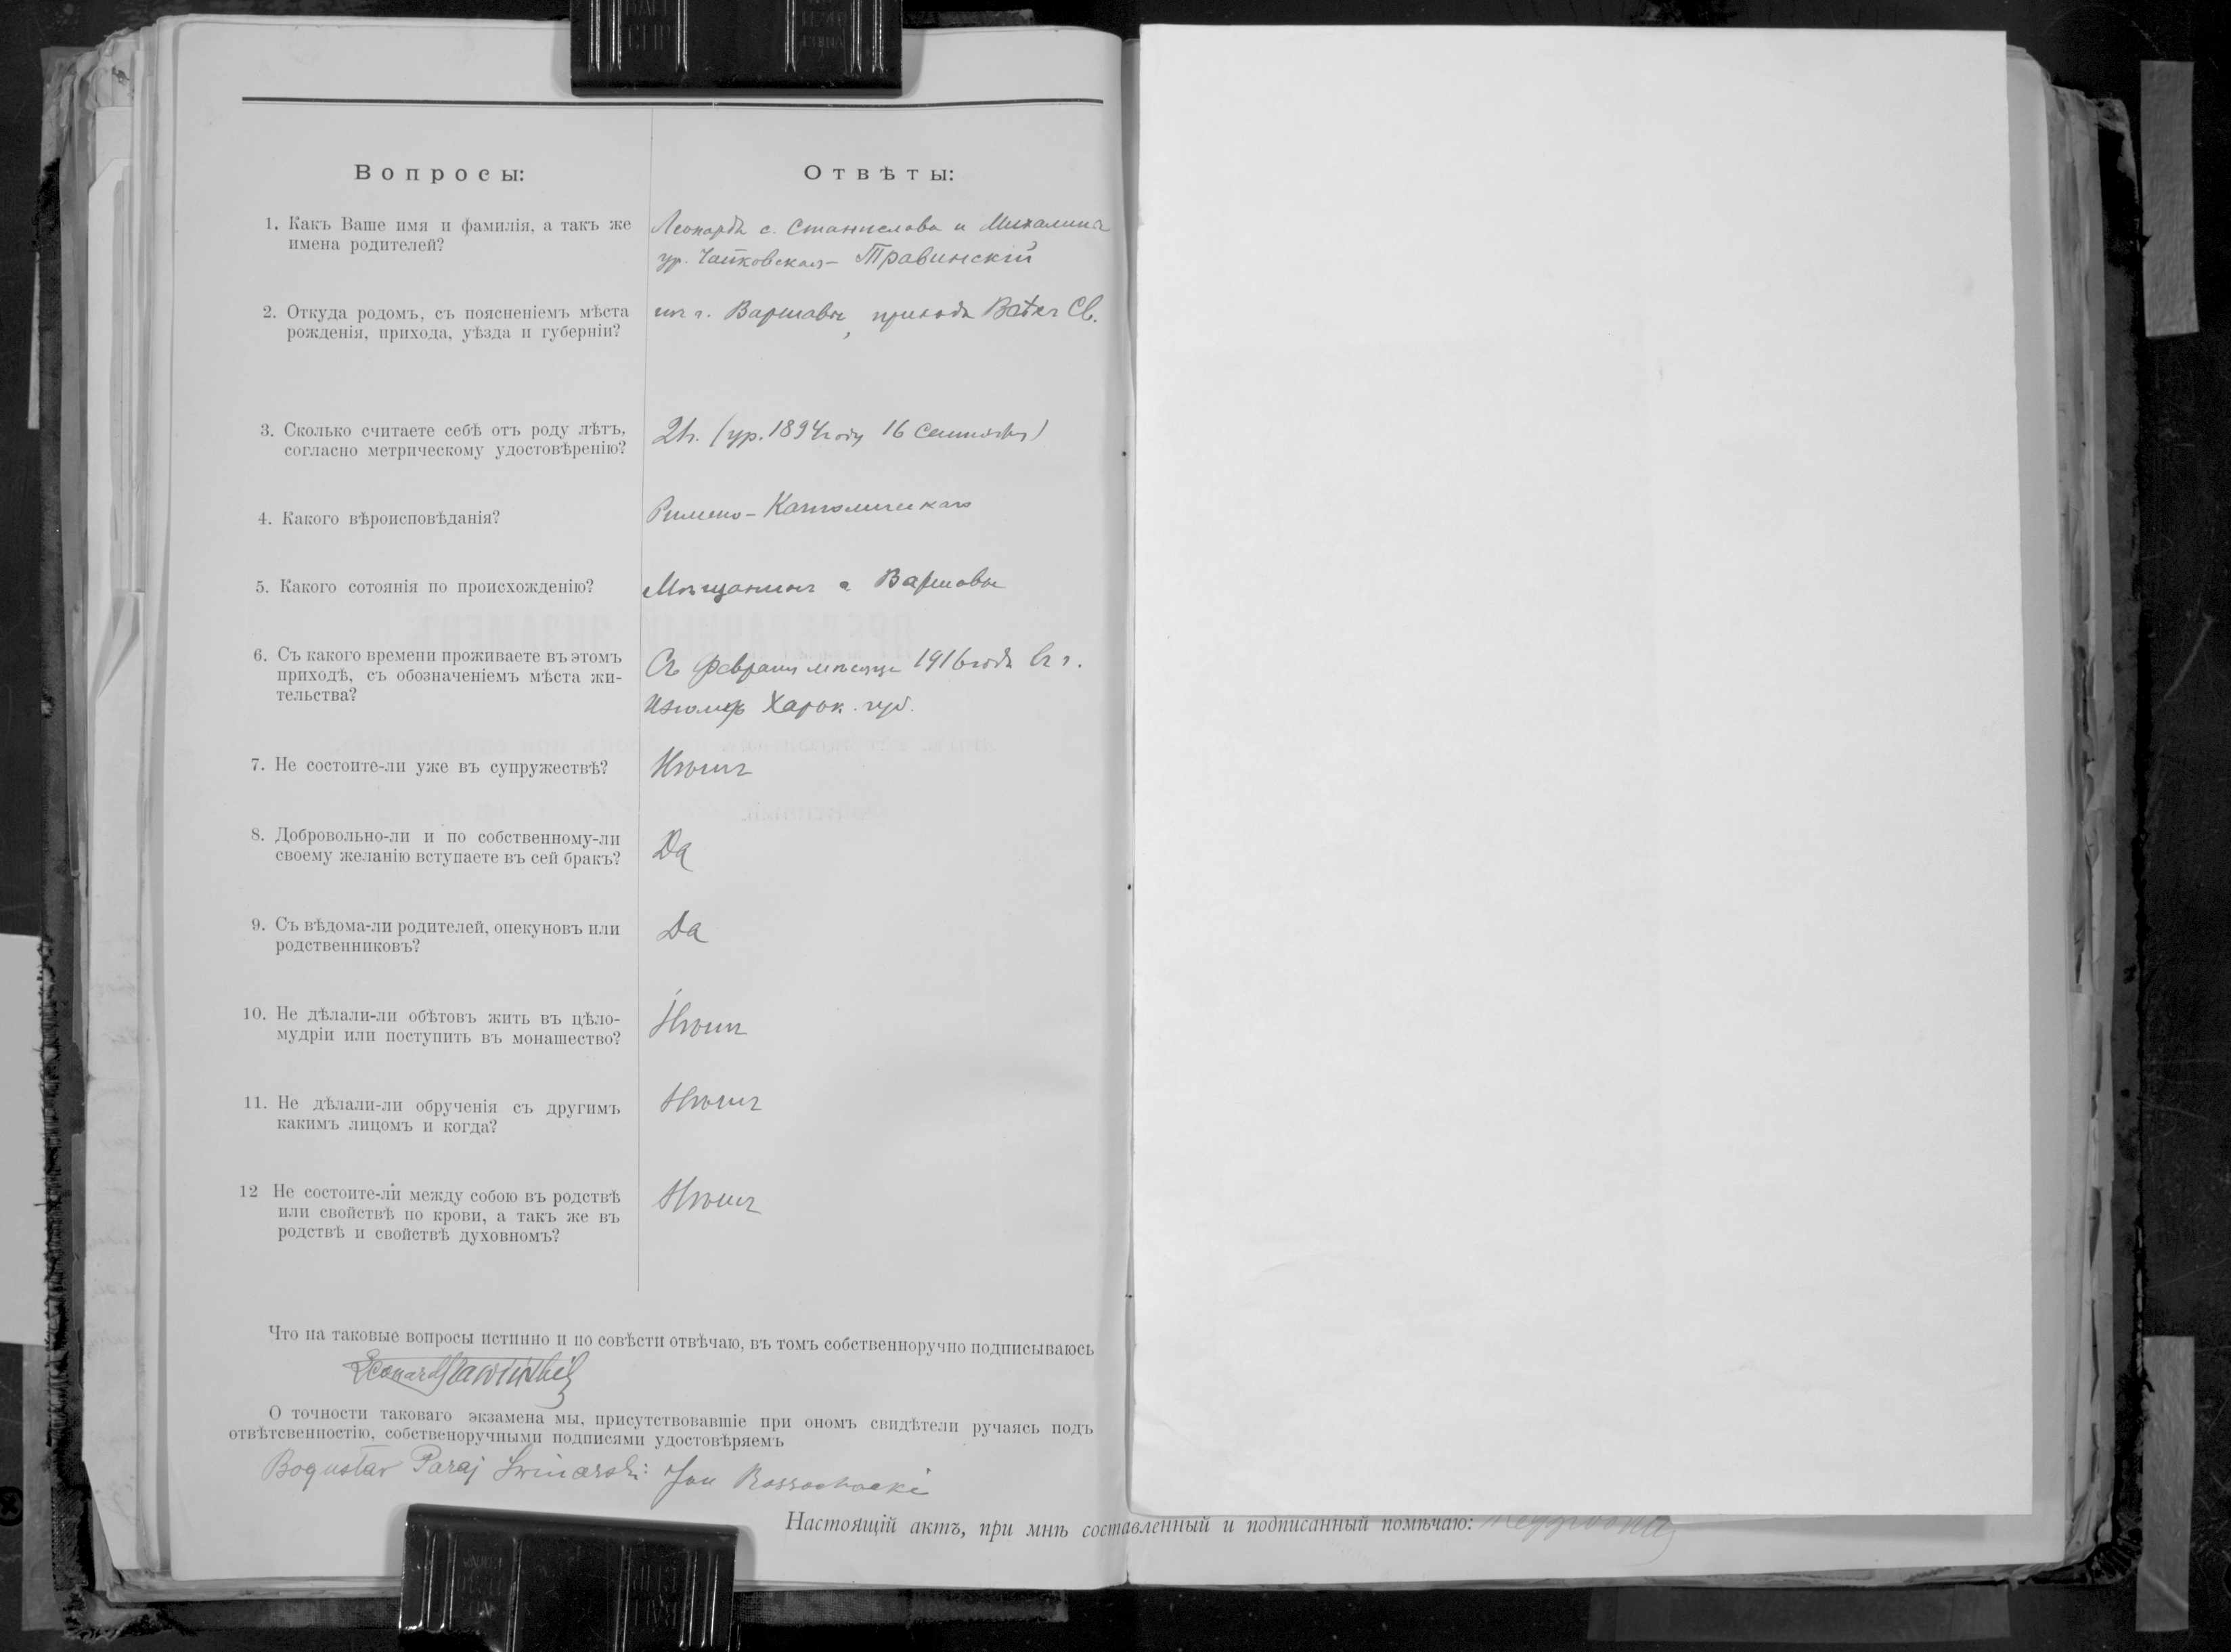 Вопросы:
Отвѣты:
1. Какъ Ваше имя и фамилія, а такъ же
имена родителей?
Леонардъ с. Станислава и Михалина
ур. Чайковская – Травинскій
2. Откуда родомъ, съ поясненіемъ мѣста
рожденія, прихода, уѣзда и губерніи?
г. Варшавы, прихода Св.
3. Сколько считаете себѣ отъ роду лѣтъ,
согласно метрическому удостовѣренію?
21. (ур. 1894 году 16 Сентября)
4. Какого вѣроисповѣданія?
Римско-Католическаго
5. Какого сотоянія по происхожденію?
Мѣщанинъ г Варшавы
6. Съ какого времени проживаете въ этомъ
приходѣ, съ обозначеніемъ мѣста жи-
тельства?
Съ февраля мѣсяца 1916 года въ г.
Изюмѣ Харьк. губ.
7. Не состоите-ли уже въ супружествѣ?
Нѣтъ
8. Добровольно-ли и по собственному-ли
своему желанію вступаете въ сей бракъ?
Да
9. Съ вѣдома-ли родителей, опекуновъ или
родственниковъ?
Да
10. Не дѣлали-ли обѣтовъ жить въ цѣло-
мудріи или поступить въ монашество?
Нѣтъ
11. Не дѣлали-ли обрученія съ другимъ
какимъ лицомъ и когда?
Нѣтъ
12 Не состоите-ли между собою въ родствѣ
или свойствѣ по крови, а такъ же въ
родствѣ и свойствѣ духовномъ?
Нѣтъ
Что на таковые вопросы истинно и по совѣсти отвѣчаю, въ томъ собственноручно подписываюсь
Leonard Trawiński
О точности таковаго экзамена мы, присутствовавшіе при ономъ свидѣтели ручаясь подъ
отвѣтсвенностію, собственоручными подписями удостовѣряемъ
Bogusław Poraj Swinarski Jan Rossochacki
Настоящій актъ, при мнѣ составленный и подписанный помѣчаю: